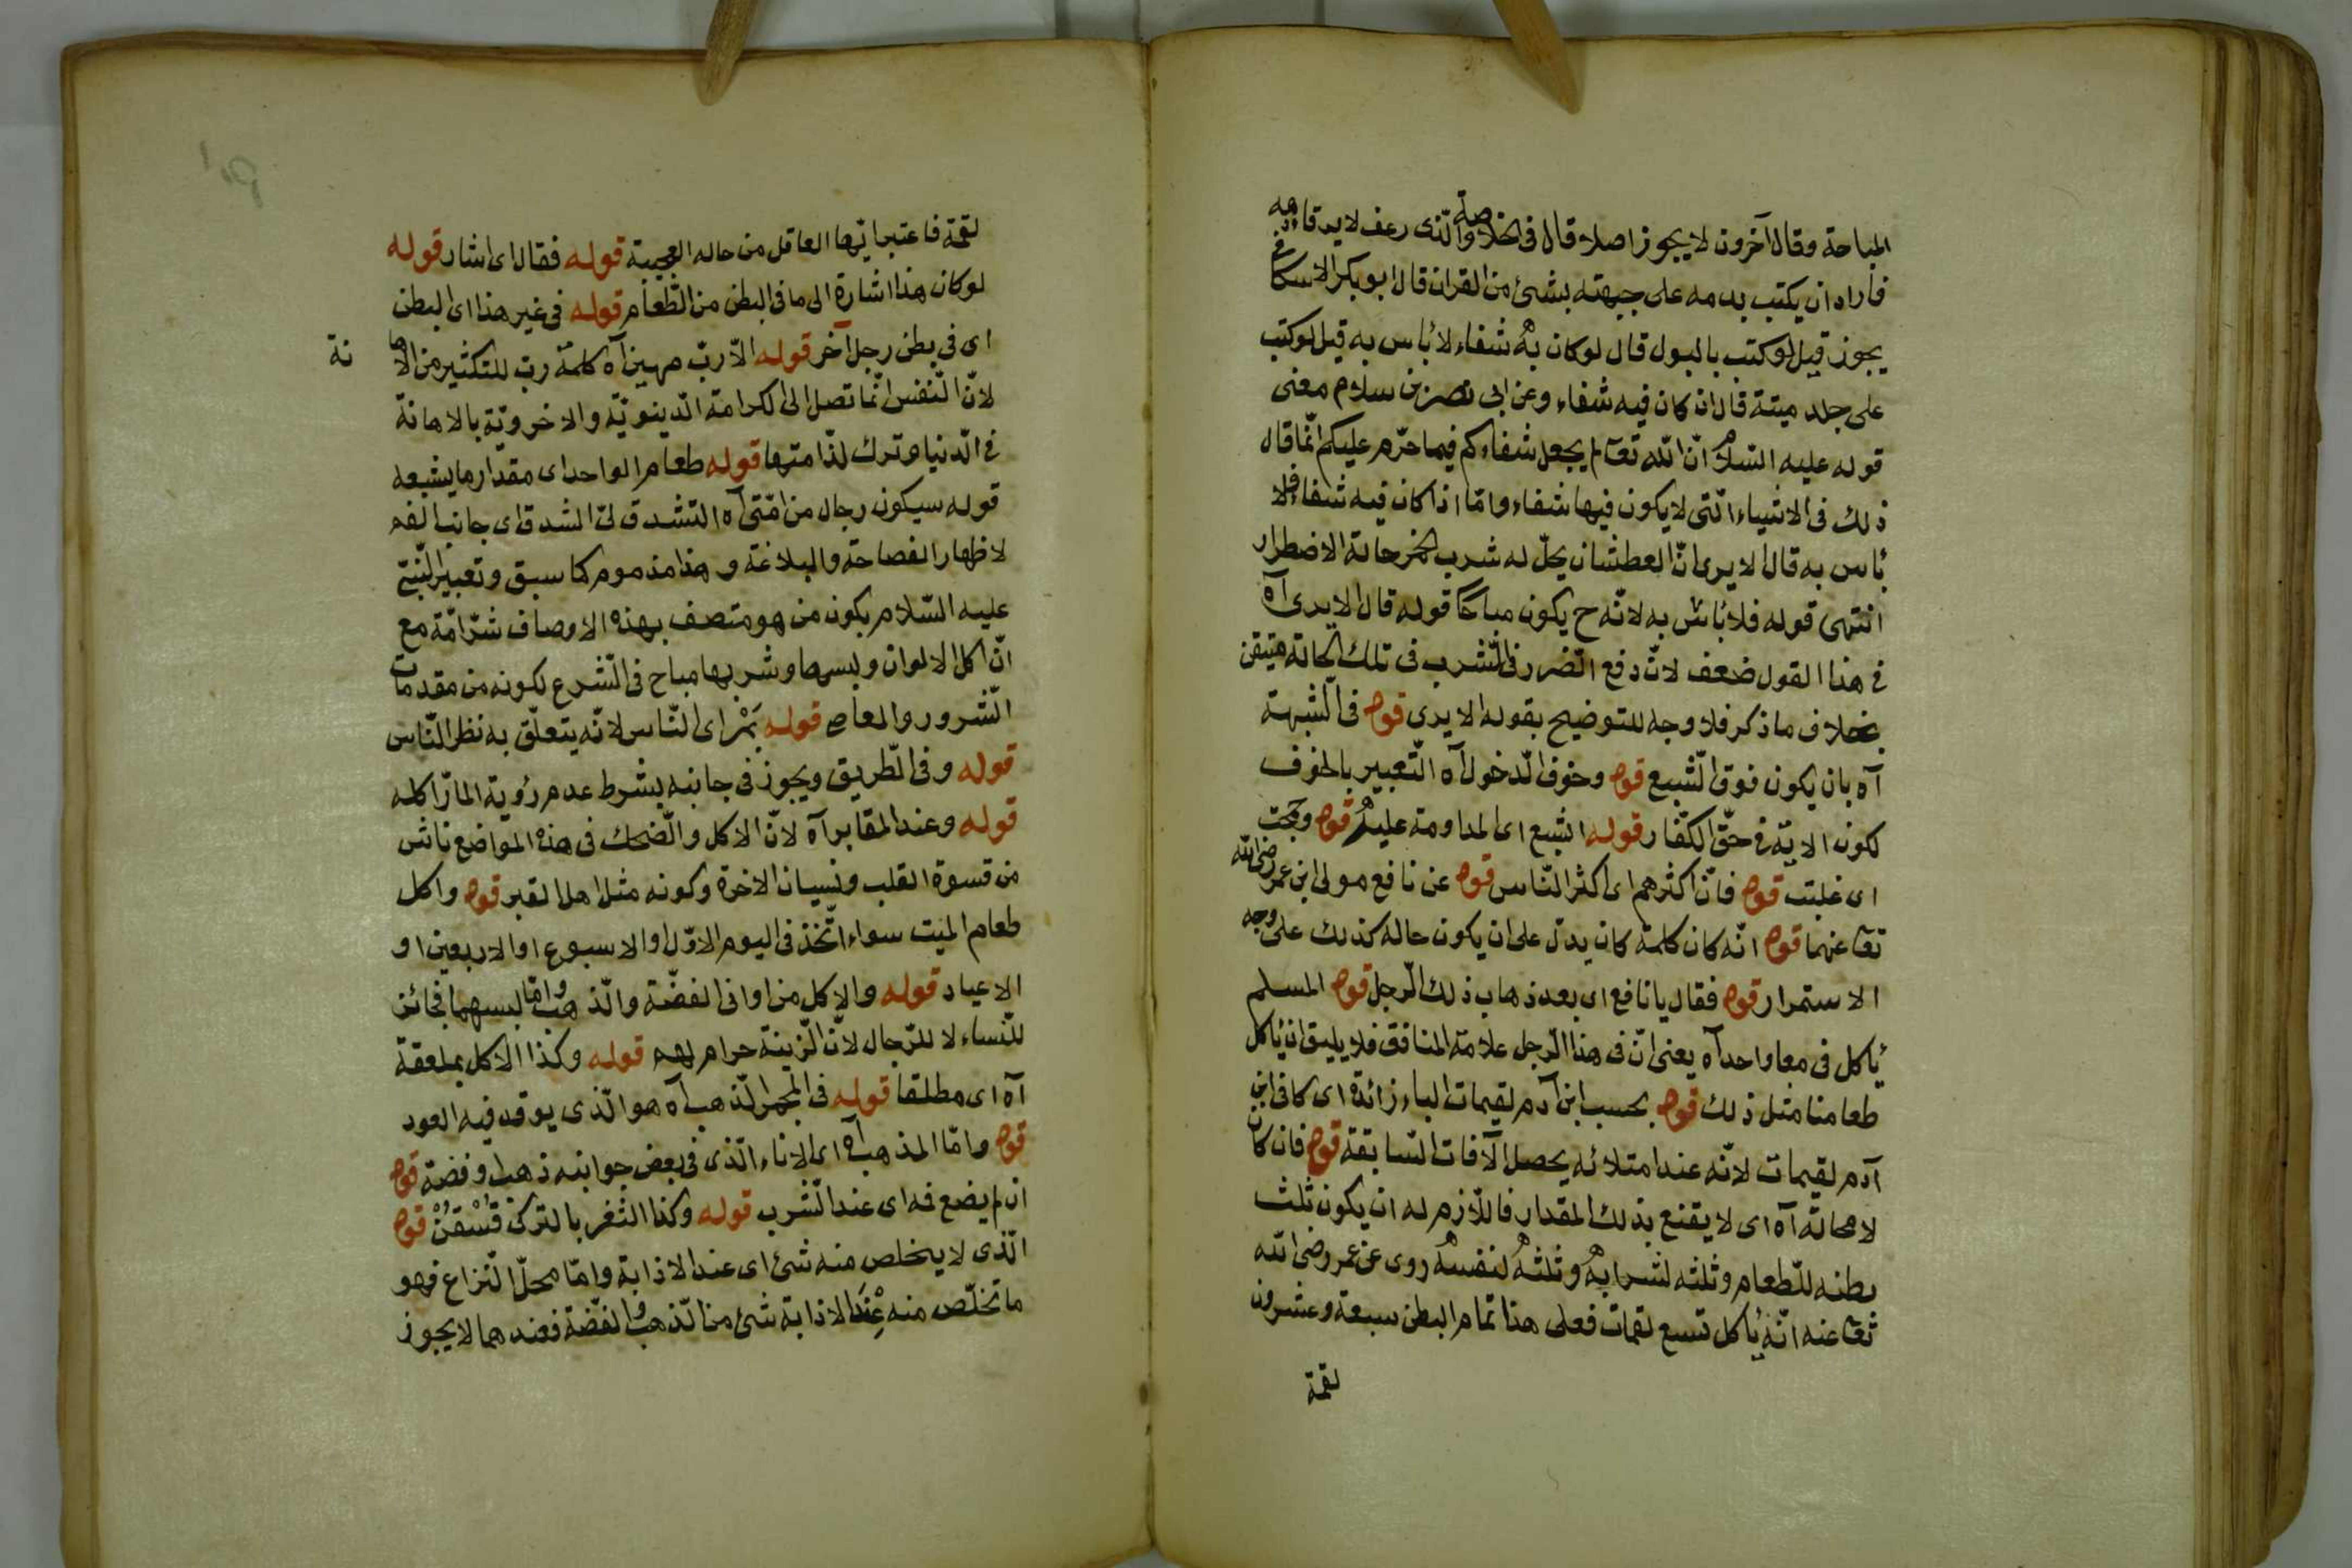 المباحة وقال آخرون لا يجوز اصلا قال فى الخلاصة والذى رعف لا يرقأ دمه
فأراد ان يكتب بدمه على جبهته بشئ من القران قال ابو بكر الاسكاف
يجوز قيل لو كتب بالبول قال لو كان به شفاء لا بأس به قيل لو كتب
على جلد ميتة قال ان كان فيه شفاء وعن ابى نصر بن سلام معنى
قوله عليه السلام انّ اللّه تعا لم يجعل شفاءكم فيما حرّم عليكم انّما قال
ذلك فى الاشياء الّتى لا يكون فيها شفاء وامّا اذا كان فيه شفاء فلا
بأس به قال الا يرى انّ العطشان يحلّ له شرب الخمر حالة الاضطرار
انتهى قوله فلا بأس به لانّه ح يكون مباحًا قوله قال الا يرى آه
فى هذا القول ضعف لانّ دفع الضرر فى الشرب فى تلك الحالة متيقن
بخلاف ما ذكر فلا وجه للتوضيح بقوله الا يرى قوله فى الشبهة
آه بان يكون فوق الشبع قوله وخوف الدخول آه التعبير بالخوف
لكون الاية فى حقّ الكفّار قوله الشبع اى المداومة عليه قوله وجمت
اى غلبت قوله فانّ اكثرهم اى اكثر النّاس قوله عن نافع مولى ابن عمر رضى اللّه
تعا عنهما قوله انّه كان كلمة كان يدلّ على ان يكون حاله كذلك على وجه
الاستمرار قوله فقال يا نافع اى بعد ذهاب ذلك الرّجل قوله المسلم
يأكل فى معا واحد آه يعنى انّ فى هذا الرّجل علامة المنافق فلا يليق ان يأكل
طعامنا مثل ذلك قوله بحسب ابن آدم لقيمات الباء زائدة اى كافى ابن
آدم لقيمات لانّه عند امتلائه يحصل الآفات السّابقة قوله فان كان
لا محالة آه اى لا يقنع بذلك المقدار فاللّازم له ان يكون ثلث
بطنه للطّعام وثلثه لشرابه وثلثه لنفسه روى عن عمر رضى اللّه
تعا عنه انّه يأكل تسع لقمات فعلى هذا تمام البطن سبعة وعشرون
لقمة
لقمة فاعتبر ايّها العاقل من حاله العجيبة قوله فقال اى اشار قوله
لو كان هذا اشارة الى ما فى البطن من الطّعام قوله فى غير هذا اى البطن
اى فى بطن رجل آخر قوله الا ربّ مهين آه كلمة رب للتكثير من الاها
نة
لانّ النّفس انّما تصل الى الكرامة الدّينويّة والاخرويّة بالاهانة
فى الدّنيا وترك لذّامتها قوله طعام الواحد اى مقدار ما يشبعه
قوله سيكون رجال من امّتى آه التشدق لىّ الشدق اى جانب الفم
لاظهار الفصاحة والبلاغة وهذا مذموم كما سبق وتعبير النّبىّ
عليه السّلام بكون من هو متصف بهذه الاوصاف شرّ امّة مع
انّ اكل الالوان ولبسها وشربها مباح فى الشّرع لكونه من مقدمات
الشّرور والمعاصى قوله بمر اى النّاس لانّه يتعلّق به نظر النّاس
قوله وفى الطّريق ويجوز فى جانبه بشرط عدم رؤية المارّ اكله
قوله وعند المقابر آه لانّ الاكل والضّحك فى هذه المواضع ناش
من قسوة القلب ونسيان الاخرة وكونه مثل اهل القبر قوله واكل
طعام الميت سواء اتّخذ فى اليوم الاوّل او الاسبوع او الاربعين او
الاعياد قوله والاكل من اوانى الفضّة والذّهب وامّا لبسهما فجائز
للنّساء لا للرّجال لانّ الزّينة حرام لهم قوله وكذا الاكل بملعقة
آه اى مطلقا قوله فى المجمر الذّهب آه هو الّذى يوقد فيه العود
قوله وامّا المذهب آه اى الاناء الّذى فى بعض جوانبه ذهب وفضة قوله
ان لم يضع فمه اى عند الشّرب قوله وكذا الثفر بالتركى قُسْقُنْ قوله
الّذى لا يخلص منه شئ اى عند الاذابة وامّا محلّ النّزاع فهو
ما تخلّص منه عند الاذابة شئ من الذّهب والفضّة فعندهما لا يجوز